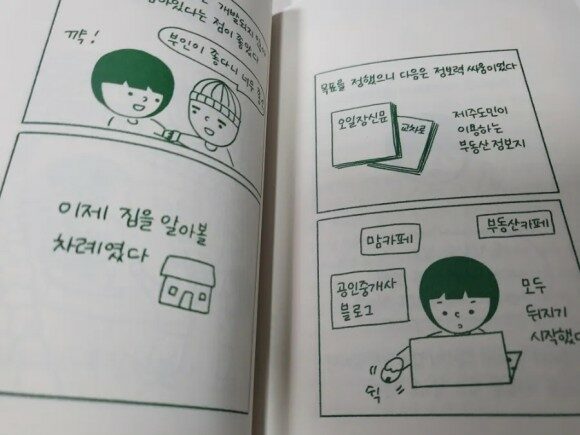 개발되지
있다는 점이 좋았다
꺅!
부인이 좋다니 너무
이제 집을 알아볼
차례였다
목표를 정했으니 다음은 정보력 싸움이었다
오일장신문
교차로
제주도민이
이용하는
부동산 정보지
맘카페
부동산카페
공인중개사
블로그
모두
뒤지기
시작했다
쉭